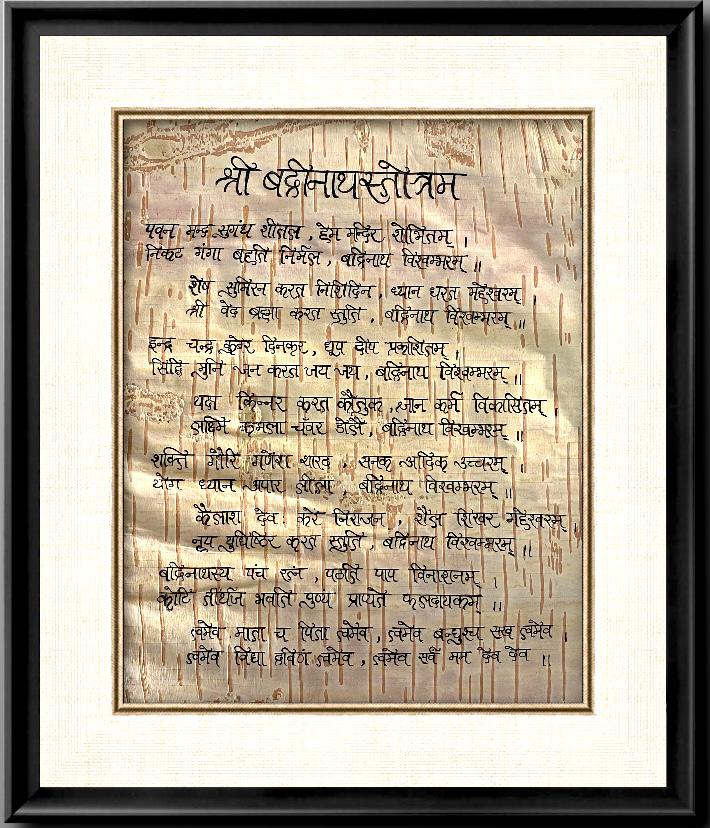 श्री बद्रीनाथस्तोत्रम
पवन मन्द सुगंध शीतल , हेम मन्दिर शोभितम् ।
निकट गंगा बहति निर्मल , बद्रिनाथ विश्वम्भरम् ॥
शेष सुमिरन करत निशिदिन , ध्यान धरत महेश्वरम् ।
श्री वेद ब्रह्मा करत स्तुति , बद्रिनाथ विश्वम्भरम् ॥
इन्द्र चन्द्र कुबेर दिनकर , धूप दीप प्रकाशितम् ।
सिद्धि मुनि जन करत जय जय , बद्रिनाथ विश्वम्भरम् ॥
यक्ष किन्नर करत कौतुक , ज्ञान कर्म विकासितम्
लक्ष्मि कमला चँवर डोलैं , बद्रिनाथ विश्वम्भरम् ॥
शक्ति गौरि गणेश शारद , सनक आदिक उच्चरम् ।
योग ध्यान अपार लीला , बद्रिनाथ विश्वम्भरम् ॥
कैलाश देवः करे निराजन , शैल शिखर महेश्वरम् ।
नृप युधिष्ठिर करत स्तुति , बद्रिनाथ विश्वम्भरम् ॥
बद्रिनाथस्य पंच रत्न , पठति पाप विनाशनम् ।
कोटि तीर्थज भवति पुण्य प्राप्यते फलदायकम् ॥
त्वमेव माता च पिता त्वमेव , त्वमेव बन्धुश्च सख त्वमेव ।
त्वमेव विद्या द्रविणं त्वमेव , त्वमेव सर्वं मम देव देव ॥